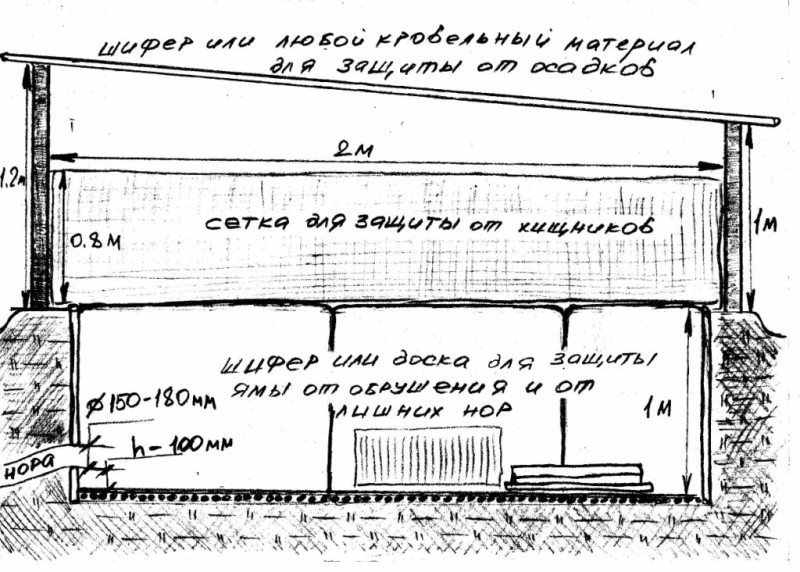 шифер или любой кровельный материал
для защиты от осадков
2м
1.2м
0.8м
сетка для защиты от хищников
1м
шифер или доска для защиты
ямы от обрушения и от
лишних нор
ø150-180мм
h-100мм
1м
нора